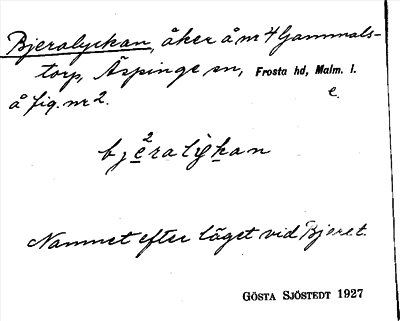 Bjeralyckan, åker å nr 4 Gammals-
torp, Äspinge sn, Frosta hd, Malm. l.
å fig. nr 2. e.
bjeralykan
2
Namnet efter läget vid Bjeret.
GÖSTA SJÖSTEDT 1927